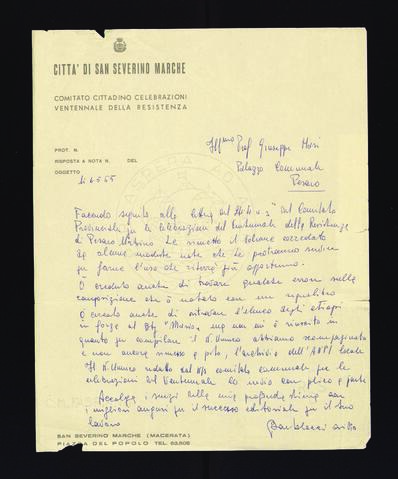 CITTA' DI SAN SEVERINO MARCHE
COMITATO CITTADINO CELEBRAZIONI
VENTENNALE DELLA RESISTENZA
PROT. N.
RISPOSTA A NOTA N. DEL
OGGETTO
Ill/mo Prof Giuseppe Mari
Palazzo Comunale
Pesaro
Facendo seguito alla lettera del del Comitato
Provinciale per le celebrazioni del Ventennale della Resistenza
di Pesaro Urbino Le rimetto il volume corredato
da alcune modeste note che Le potranno servire
per farne l'uso che riterrà più opportuno.
O creduto anche di trovare qualche errore sulla
composizione che ò notato con un
O cercato anche di ritrovare l'elenco degli etiopi
in forza al Btg "Mario" ma non mi è riuscito in
quanto per compilare il N. Unico abbiamo scompaginato
e non ancora rimesso a posto, l'archivio dell'ANPI locale
Il N. Unico edito dal ns comitato comunale per le
celebrazioni del Ventennale Le invio con plico a parte
Accolga i sensi della mia profonda stima con
i migliori auguri per il successo editoriale per il Suo
lavoro
SAN SEVERINO MARCHE (MACERATA)
PIAZZA DEL POPOLO TEL. 63.508